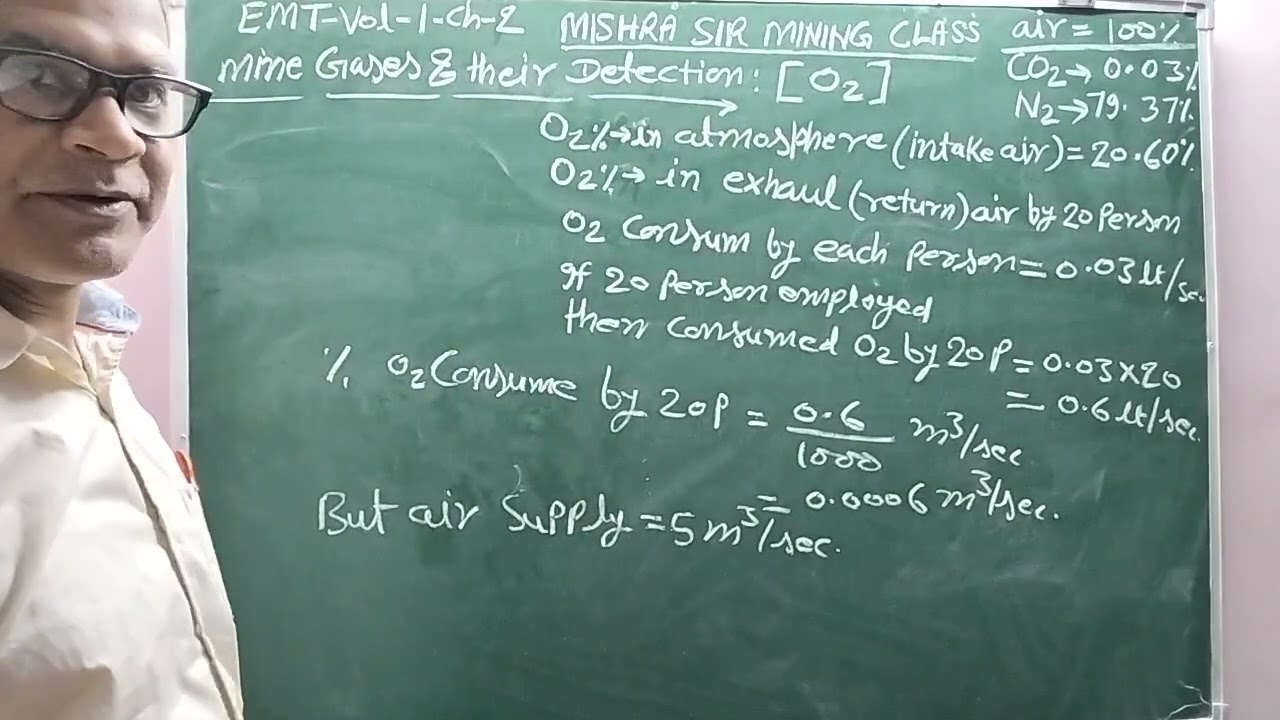 EMT-Vol-1-Ch-2 MISHRA SIR MINING CLASS
air = 100%
Mine Gases & their Detection: [O2]
CO2→ 0.03%
N2→79.37%
O2%→in atmosphere (intake air)=20.60%
O2%→ in exhaul (return) air by 20 Person
O2 Consum by each Person = 0.03 lt/sec
If 20 Person employed
then Consumed O2 by 20P = 0.03×20
= 0.6 lt/sec.
% O2 Consume by 20P = 0.6/1000 m³/sec
= 0.0006 m³/sec.
But air Supply = 5 m³/sec.